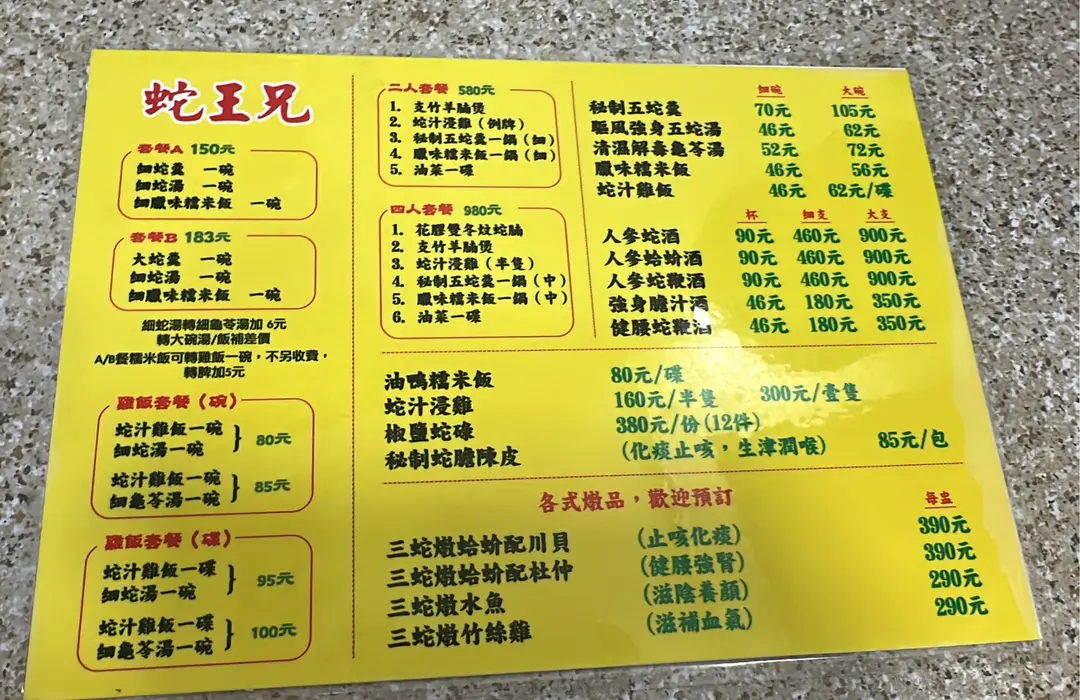 蛇王兄
套餐A 150元
細蛇羹 一碗
細蛇湯 一碗
細臘味糯米飯 一碗
套餐B 183元
大蛇羹 一碗
細蛇湯 一碗
細臘味糯米飯 一碗
細蛇湯轉細龜苓湯加 6元
轉大碗湯/飯補差價
A/B餐糯米飯可轉雞飯一碗，不另收費，
轉脾加5元
雞飯套餐（碗）
蛇汁雞飯一碗
細蛇湯一碗
80元
蛇汁雞飯一碗
細龜苓湯一碗
85元
雞飯套餐（碟）
蛇汁雞飯一碟
細蛇湯一碗
95元
蛇汁雞飯一碟
細龜苓湯一碗
100元
二人套餐 580元
1. 支竹羊腩煲
2. 蛇汁浸雞（例牌）
3. 秘制五蛇羹一鍋（細）
4. 臘味糯米飯一鍋（細）
5. 油菜一碟
四人套餐 980元
1. 花膠雙冬炆蛇腩
2. 支竹羊腩煲
3. 蛇汁浸雞（半隻）
4. 秘制五蛇羹一鍋（中）
5. 臘味糯米飯一鍋（中）
6. 油菜一碟
細碗 大碗
秘制五蛇羹 70元 105元
驅風強身五蛇湯 46元 62元
清濕解毒龜苓湯 52元 72元
臘味糯米飯 46元 56元
蛇汁雞飯 46元 62元/碟
杯 細支 大支
人參蛇酒 90元 460元 900元
人參蛤蚧酒 90元 460元 900元
人參蛇鞭酒 90元 460元 900元
強身膽汁酒 46元 180元 350元
健腰蛇鞭酒 46元 180元 350元
油鴨糯米飯 80元/碟
蛇汁浸雞 160元/半隻 300元/壹隻
椒鹽蛇碌 380元/份(12件)
秘制蛇膽陳皮 (化痰止咳，生津潤喉) 85元/包
各式燉品，歡迎預訂
每盅
三蛇燉蛤蚧配川貝 (止咳化痰) 390元
三蛇燉蛤蚧配杜仲 (健腰強腎) 390元
三蛇燉水魚 (滋陰養顏) 290元
三蛇燉竹絲雞 (滋補血氣) 290元